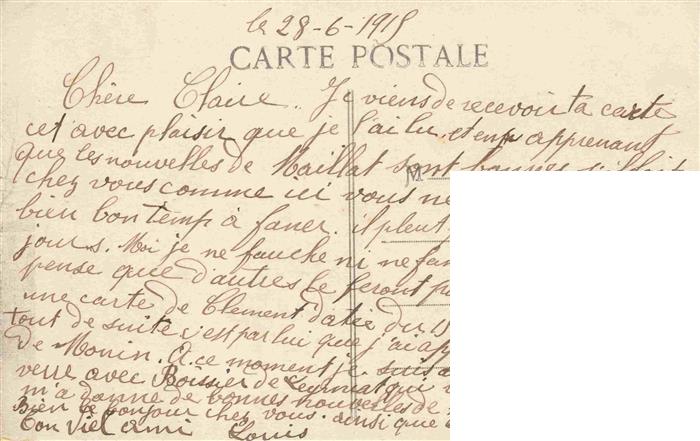 le 28-6-1915
CARTE POSTALE
Chère Claire. Je viens de recevoir ta carte
cet avec plaisir que je l'ai lu et en apprenant
que les nouvelles de Maillat sont bonnes s'il fait
chez vous comme ici vous ne
bien bon temp à faner. il pleut
jours. Moi je ne fauche ni ne fan
pense que d'autres le feront p
une carte de Clement datée du 15
tout de suite c'est par lui que j'ai app
de Monin. A ce moment je suis a
verre avec Boissier de qui
m'a donne de bonnes nouvelles de
Bien le bonjour chez vous. ainsi que
Ton viel ami Louis